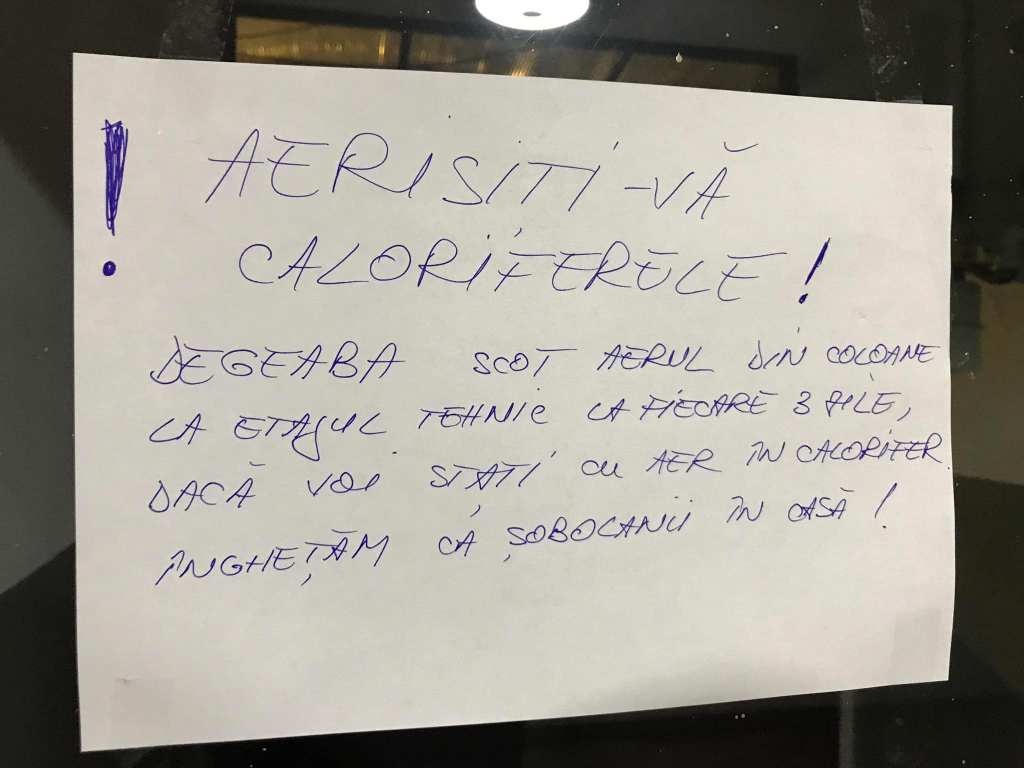 ! AERISIȚI-VĂ
CALORIFERELE!
DEGEABA SCOT AERUL DIN COLOANE
LA ETAJUL TEHNIC LA FIECARE 3 ZILE,
DACĂ VOI STAȚI CU AER ÎN CALORIFER.
ÎNGHEȚĂM CA ȘOBOLANII ÎN CASĂ!